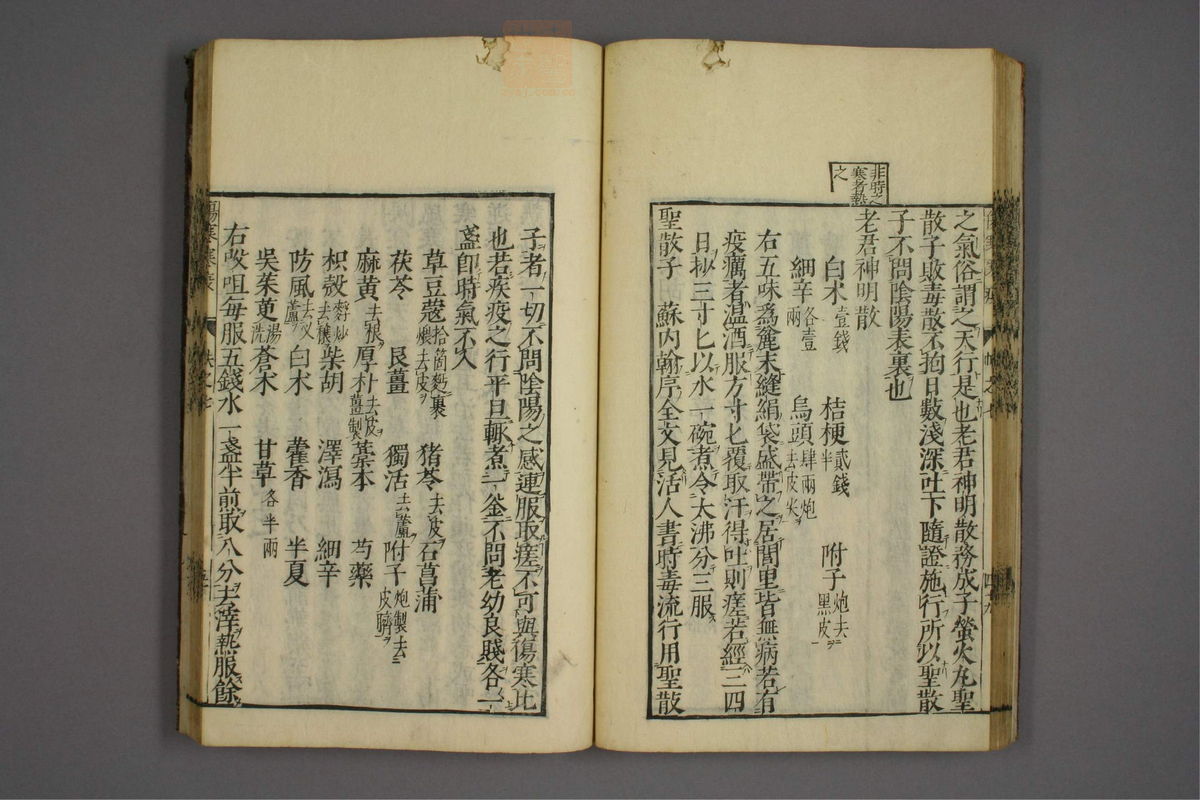 非時之
寒者熱
之
之氣俗謂之天行是也老君神明散務成子螢火丸聖
散子敗毒散不拘日數淺深吐下隨證施行所以聖散
子不問陰陽表裏也
老君神明散
白朮壹錢 桔梗貳錢半 附子炮去黑皮
細辛各壹兩 烏頭肆兩炮去皮尖
右五味爲麄末縫絹袋盛帶之居閭里皆無病若有
疫癘者温酒服方寸匕覆取汗得吐則瘥若經三四
日抄三寸匕以水一碗煮令大沸分三服
聖散子 蘇內翰序全文見活人書時毒流行用聖散
子者一切不問陰陽之感連服取瘥不可與傷寒比
也若疾疫之行平旦輙煮一釜不問老幼良賤各一
盞卽時氣不入
草豆蔻拾箇麪裹煨去皮 猪苓去皮 石菖蒲
茯苓 良薑 獨活去蘆 附子炮製去皮臍
麻黄去根 厚朴去皮薑製 藁本 芍藥
枳殼麩炒去穰 柴胡 澤瀉 細辛
防風去叉蘆 白朮 藿香 半夏
吳茱萸湯洗 蒼朮 甘草各半兩
右㕮咀每服五錢水一盞半前取八分去滓熱服餘
傷寒